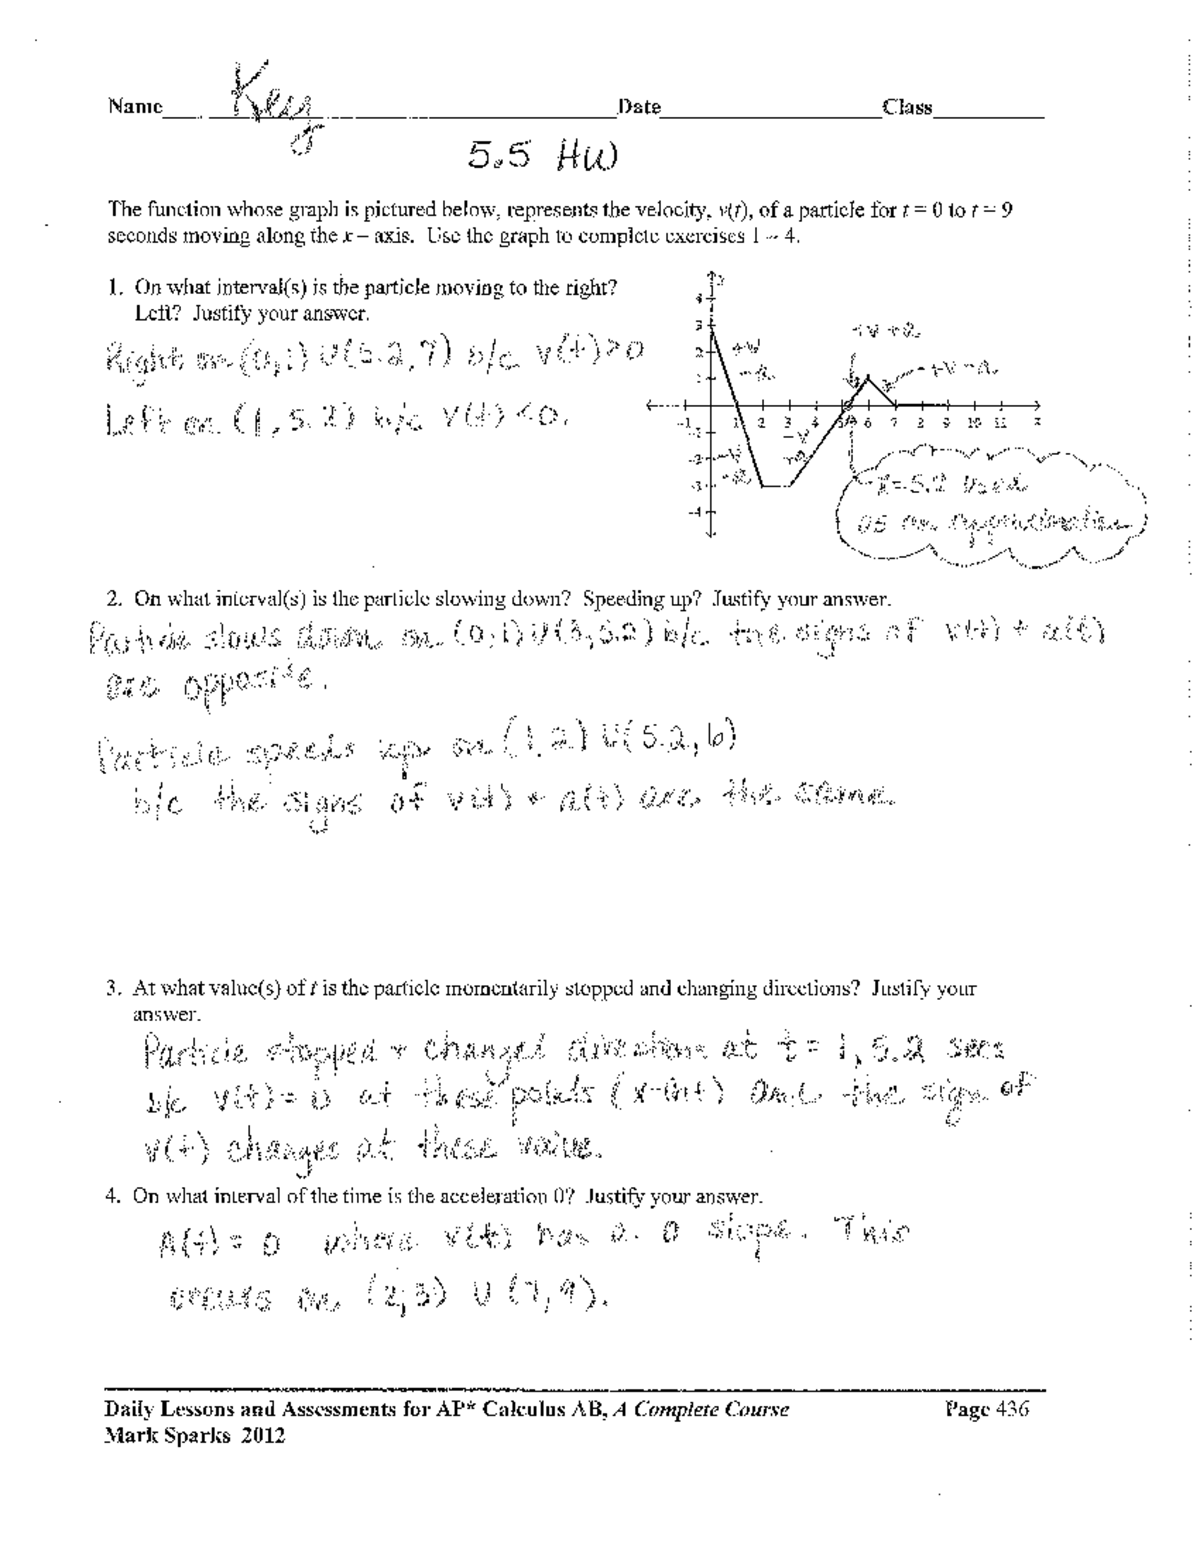 Name Key Date Class
5.5 HW
The function whose graph is pictured below, represents the velocity, v(t), of a particle for t = 0 to t = 9
seconds moving along the x – axis. Use the graph to complete exercises 1 – 4.
1. On what interval(s) is the particle moving to the right?
Left? Justify your answer.
Right on (0,1) U (5.2,7) b/c v(t)>0
Left on (1,5.2) b/c v(t)<0.
y
4
3
2
1
-1 1 2 3 4 5 6 7 8 9 10 11 x
-1
-2
-3
-4
+v
-a
-v
-a
-v
+a
+v +a
+v -a
x=5.2 used
as an approximation
2. On what interval(s) is the particle slowing down? Speeding up? Justify your answer.
Particle slows down on (0,1) U (3,5.2) b/c the signs of v(t) + a(t)
are opposite.
Particle speeds up on (1,2) U (5.2,6)
b/c the signs of v(t) + a(t) are the same.
3. At what value(s) of t is the particle momentarily stopped and changing directions? Justify your
answer.
Particle stopped + changed direction at t = 1, 5.2 secs
b/c v(t) = 0 at these points (x-int) and the sign of
v(t) changes at these value.
4. On what interval of the time is the acceleration 0? Justify your answer.
A(t) = 0 where v(t) has a 0 slope. This
occurs on (2,3) U (7,9).
Daily Lessons and Assessments for AP* Calculus AB, A Complete Course Page 436
Mark Sparks 2012